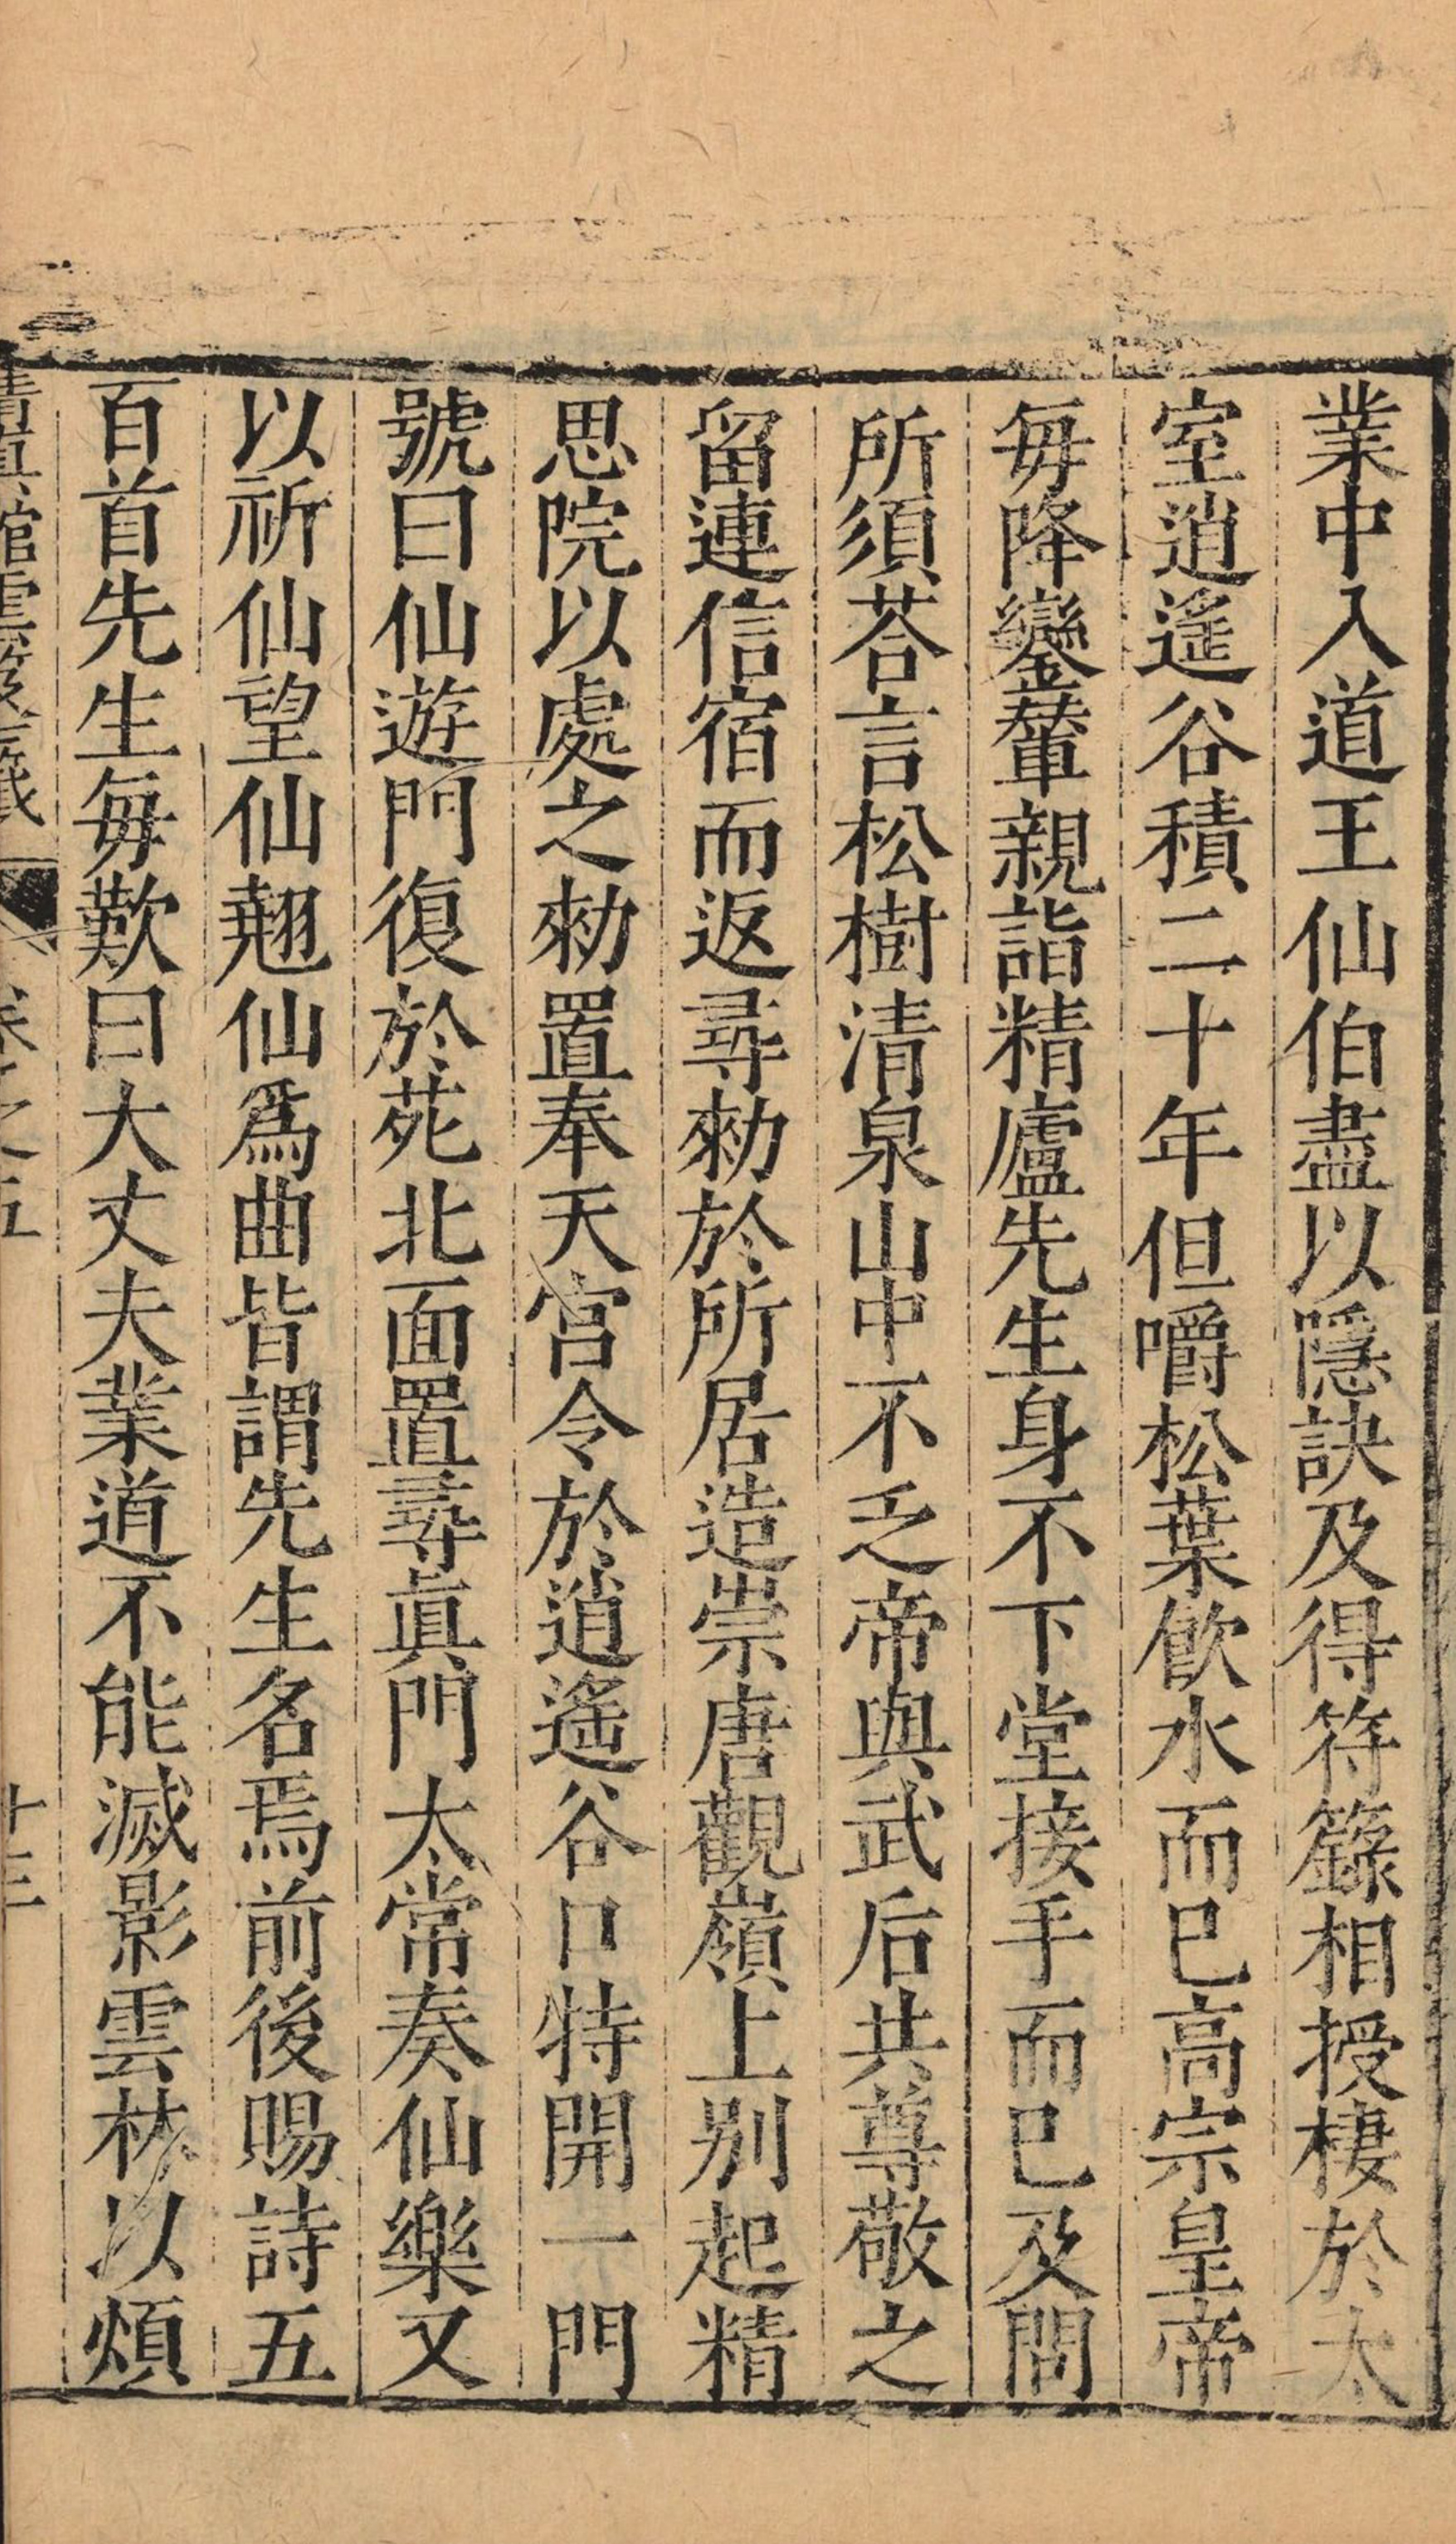 業中入道王仙伯盡以隱訣及得符籙相授棲於太
室逍遙谷積二十年但嚼松葉飲水而巳高宗皇帝
毎降鑾輦親詣精廬先生身不下堂接手而巳及問
所須荅言松樹清泉山中不乏帝與武后共尊敬之
留連信宿而返尋勑於所居造崇唐觀嶺上別起精
思院以處之勑置奉天宮令於逍遙谷口特開一門
號曰仙遊門復於苑北面置尋眞門太常奏仙樂又
以祈仙望仙翹仙爲曲皆謂先生名焉前後賜詩五
百首先生毎歎曰大丈夫業道不能滅影雲林以煩
清真館雲笈七籤 卷之五 十三